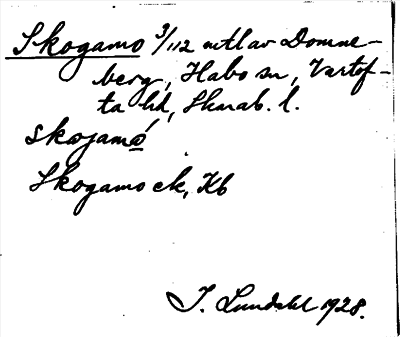 Skogamo 3/112 mtl av Domme-
berg, Habo sn, Vartof-
ta hd, Skarab. l.
skogamó
Skogamo ek, Kb
J. Lundahl 1928.